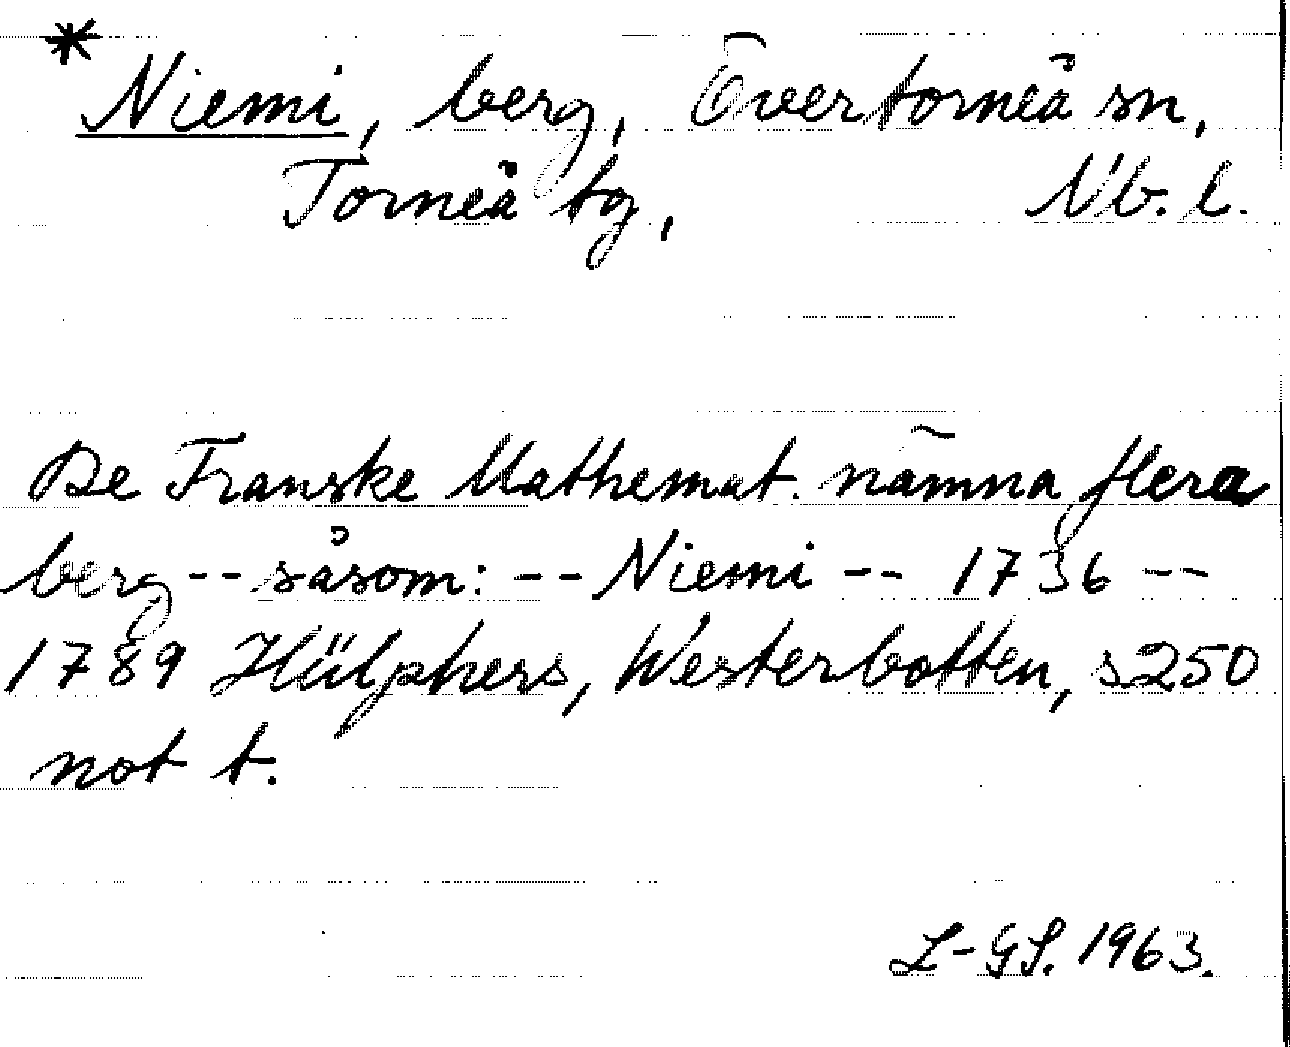 * Niemi, berg, Övertorneå sn,
Torneå tg, Nb. l.
De Franske Mathemat. nämna flera
berg -- såsom: -- Niemi -- 1736 --
1789 Hülphers, Westerbotten, s 250
not t.
L-GS. 1963.